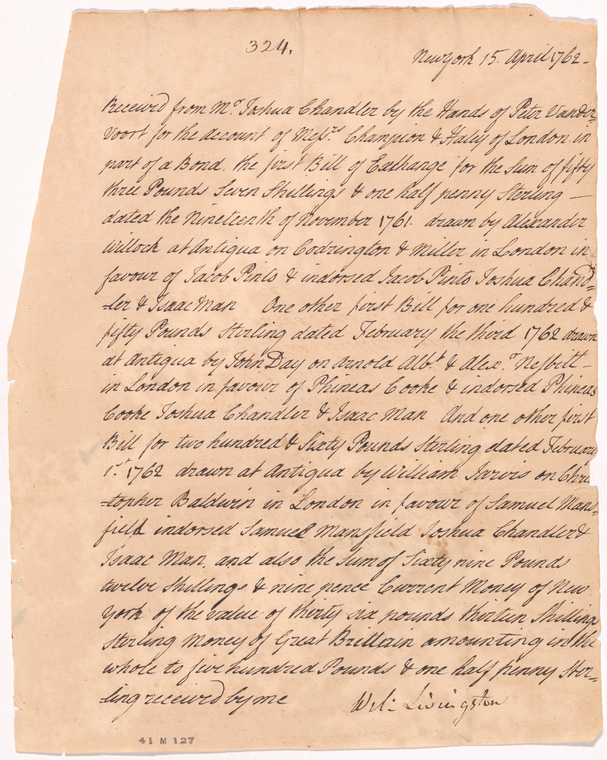 324.
New York 15. April 1762 -
Received from Mr. Joshua Chandler by the Hands of Peter Vander-
voort for the account of Messrs. Champion & Haley of London in
part of a Bond. the first Bill of Exchange for the Sum of fifty
three Pounds Seven Shillings & one half penny Sterling —
dated the Nineteenth of November 1761. drawn by Alexander
Willock at Antigua on Codrington & Miller in London in
favour of Jacob Pinto & indorsed Jacob Pinto Joshua Chand-
-ler & Isaac Man One other first Bill for one hundred &
fifty Pounds Sterling dated February the third 1762 drawn
at Antigua by John Day on Arnold Albt. & Alexr. Nesbitt -
in London in favour of Phineas Cooke & indorsed Phineas
Cooke Joshua Chandler & Isaac Man And one other first
Bill for two hundred & Sixty Pounds Sterling dated February
1st. 1762 drawn at Antigua by William Jarvis on Chris
-topher Baldwin in London in favour of Samuel Mans-
field indorsed Samuel Mansfield Joshua Chandler &
Isaac Man, and also the Sum of Sixty nine Pounds
twelve Shillings & nine pence Current Money of New
York of the value of thirty six pounds thirteen Shillings
Sterling Money of Great Brittain amounting in the
whole to five hundred Pounds & one half penny Ster-
-ling received by me Wil: Livingston
41 M 127